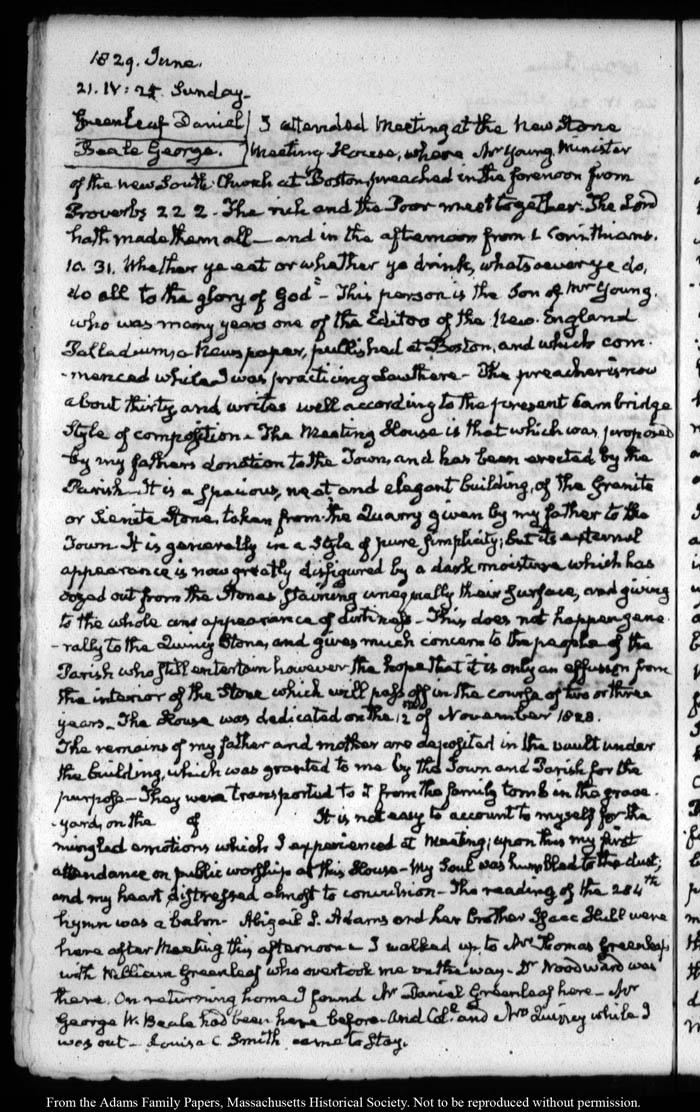 1829. June.
21. IV: 25. Sunday-
Greenleaf Daniel
Beale George.
I attended Meeting at the New Stone
Meeting House, where Mr Young Minister
of the new South Church at Boston, preached in the forenoon from
Proverbs 22 2. The rich and the Poor meet together. The Lord
hath made them all — and in the afternoon from 1. Corinthians.
10. 31. Whether ye eat or whether ye drink, whatsoever ye do,
do all to the glory of God — This person is the Son of Mr Young.
who was many years one of the Editors of the New-England
Palladium, a Newspaper, published at Boston, and which com-
-menced while I was practicing Law there — The preacher is now
about thirty, and writes well according to the present Cambridge
Style of composition — The Meeting House is that which was proposed
by my fathers donation to the Town, and has been erected by the
Parish — It is a spacious, neat and elegant building, of the Granite
or Sienite Stone, taken from the Quarry given by my father to the
Town — It is generally in a Style of pure simplicity; but its external
appearance is now greatly disfigured by a dark moisture which has
oozed out from the Stones, staining unequally their surface, and giving
to the whole an appearance of dirtiness — This does not happen gene-
-rally to the Quincy Stone, and gives much concern to the people of the
Parish who still entertain however the hope that it is only an effusion from
the interior of the Stone which will pass off in the course of two or three
years — The House was dedicated on the 12th of November 1828.
The remains of my father and mother are deposited in the vault under
the building, which was granted to me by the Town and Parish for the
purpose — They were transported to it from the family tomb in the grave-
-yard, on the of It is not easy to account to myself for the
mingled emotions which I experienced at Meeting; upon this my first
attendance on public worship at this House — My Soul was humbled to the dust;
and my heart distressed almost to convulsion — The reading of the 284th
hymn was a balm — Abigail S. Adams and her brother Isaac Hull were
here after Meeting this afternoon — I walked up to Mr Thomas Greenleaf's
with William Greenleaf who overtook me on the way — Dr Woodward was
there. On returning home I found Mr Daniel Greenleaf here — Mr
George W. Beale had been here before — And Col. and Mrs Quincy while I
was out — Louisa C. Smith came to stay.
From the Adams Family Papers, Massachusetts Historical Society. Not to be reproduced without permission.